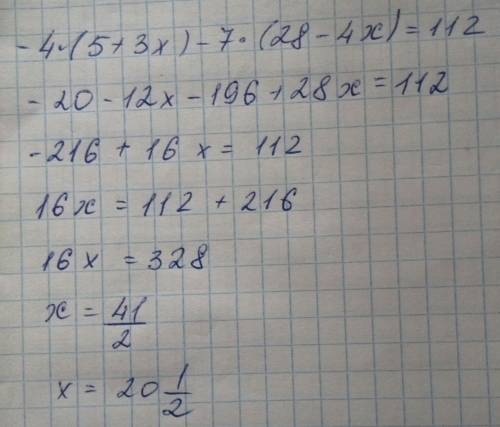 -4·(5+3x)-7·(28-4x)=112
-20-12x-196+28x=112
-216+16x=112
16x=112+216
16x=328
x=41/2
x=20 1/2